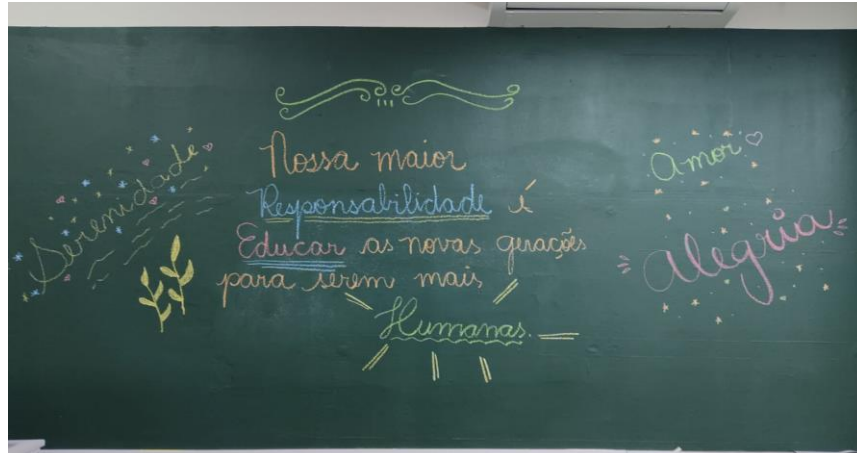 Serenidade
Nossa maior
Responsabilidade é
Educar as novas gerações
para serem mais
Humanas.
Amor
Alegria